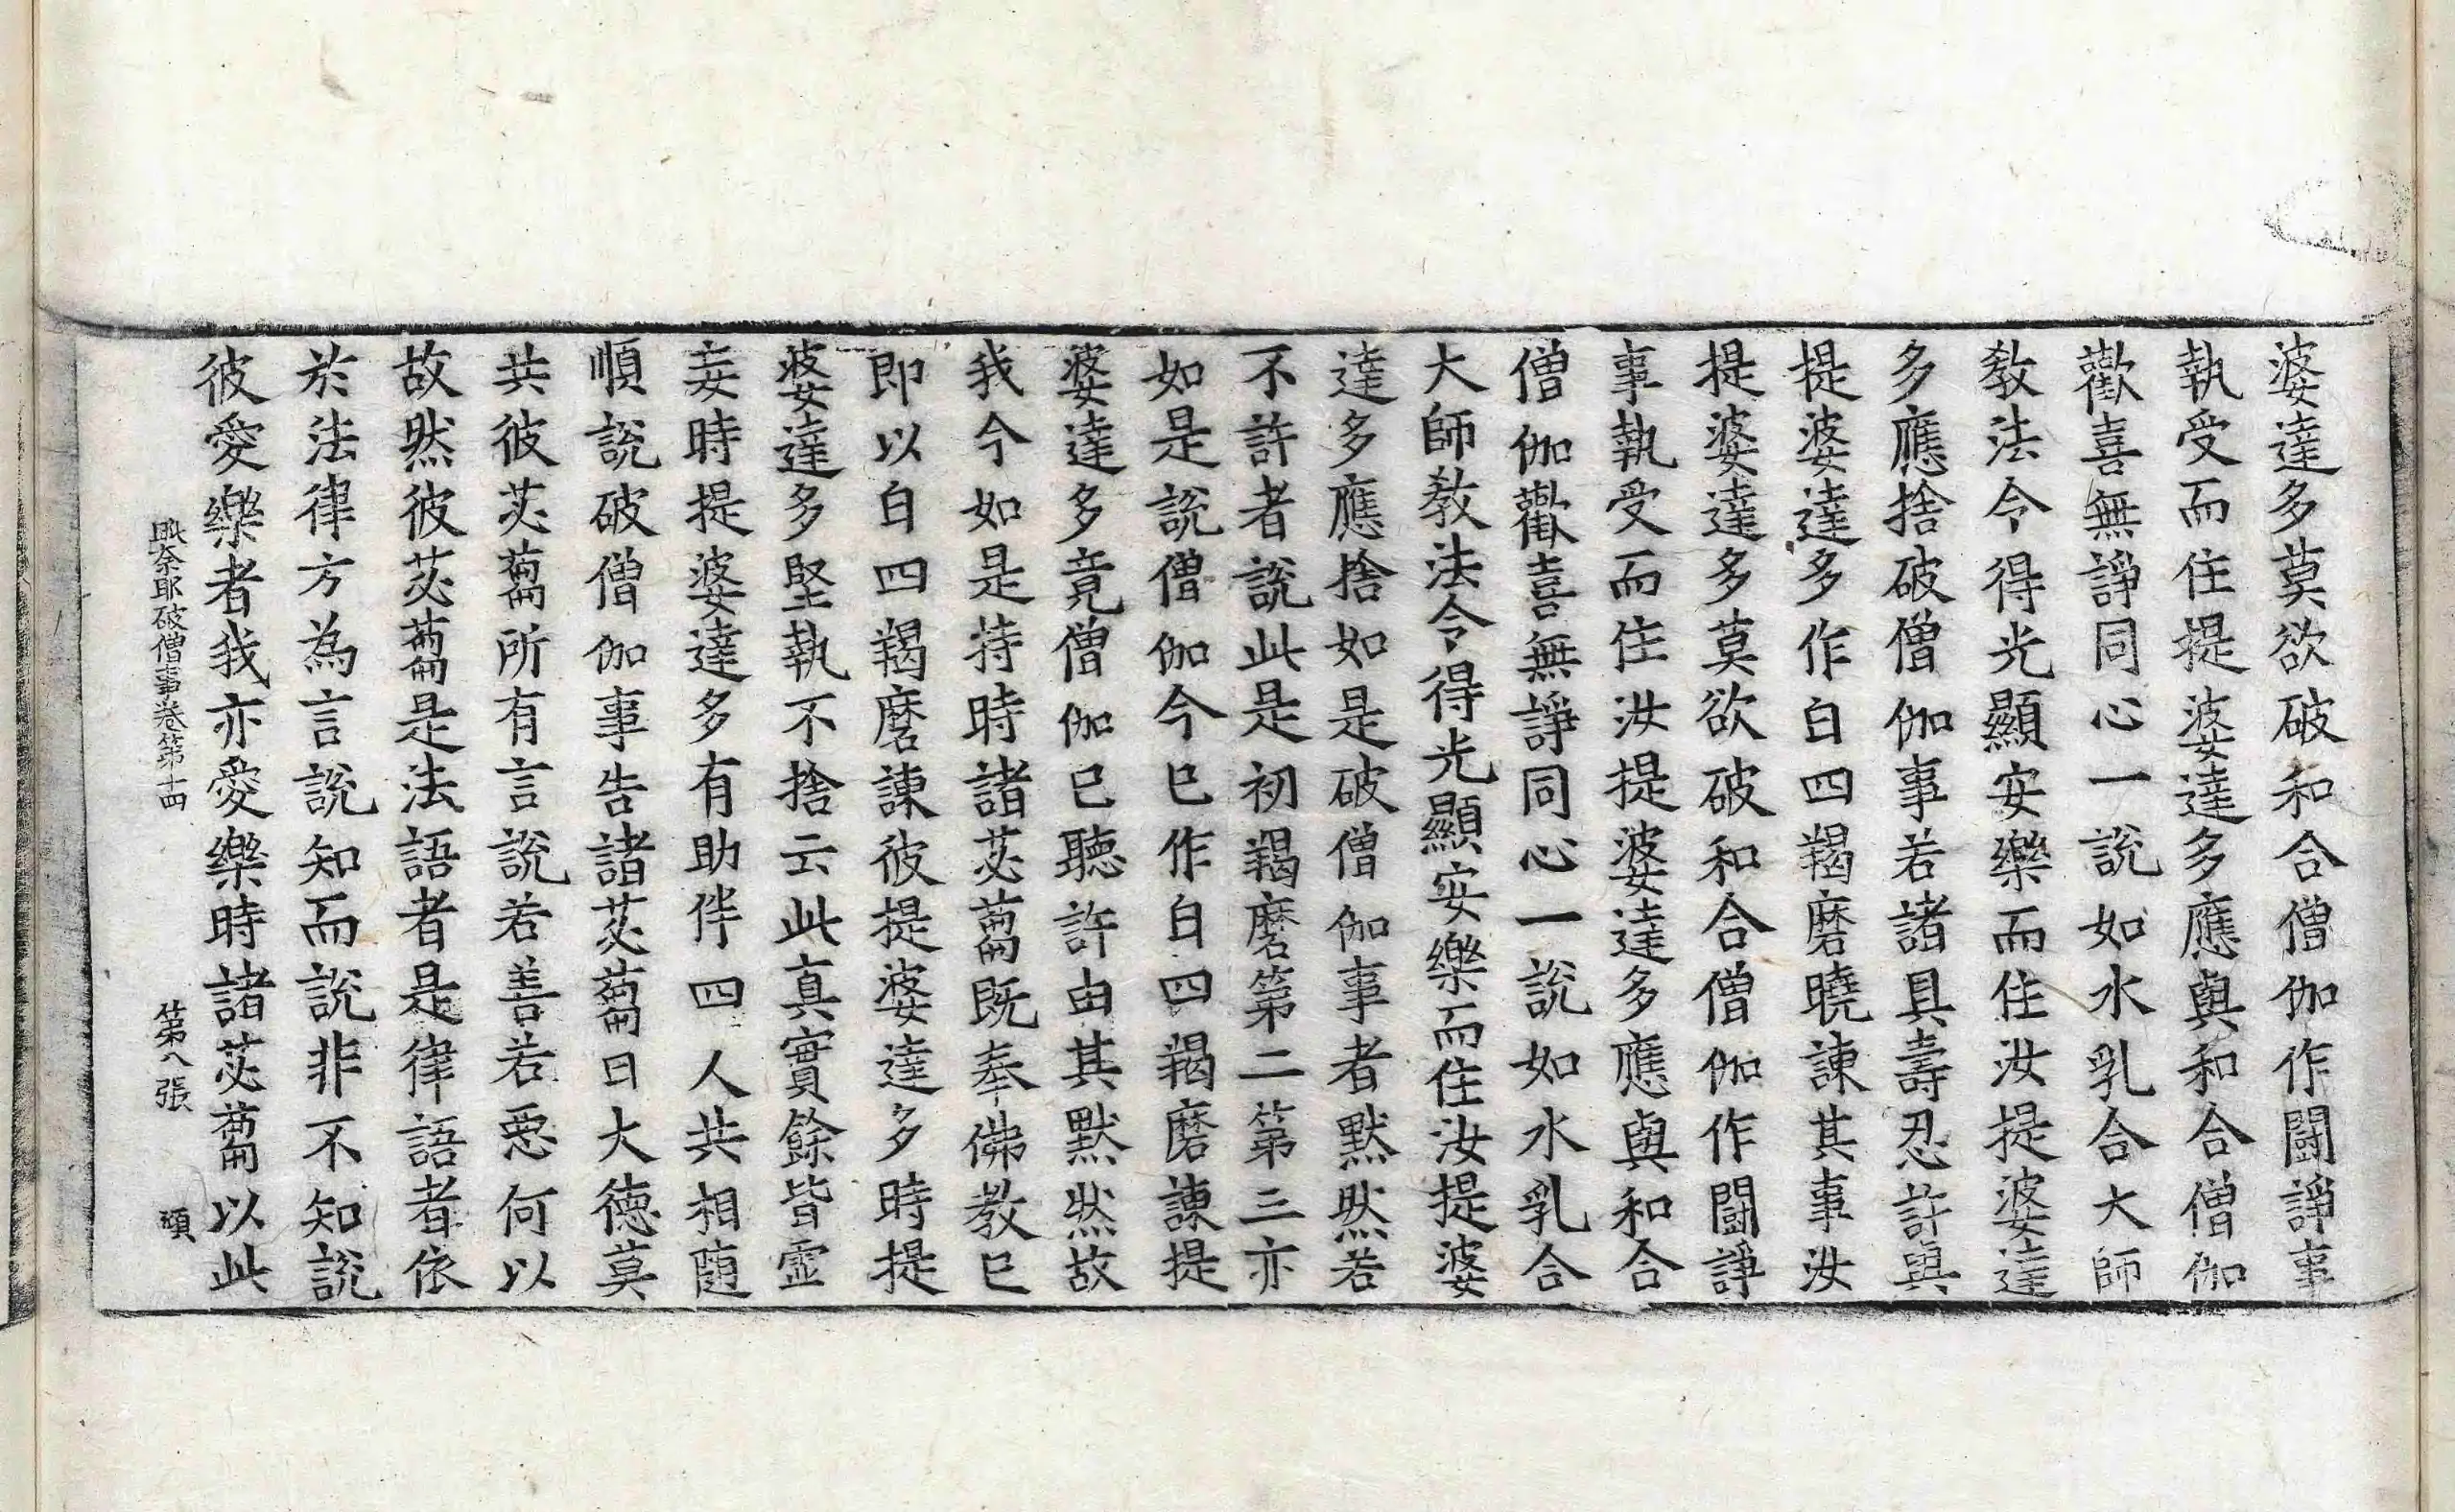 婆達多莫欲破和合僧伽作鬪諍事
執受而住提婆達多應與和合僧伽
歡喜無諍同心一說如水乳合大師
教法令得光顯安樂而住汝提婆達
多應捨破僧伽事若諸具壽忍許與
提婆達多作白四羯磨曉諫其事汝
提婆達多莫欲破和合僧伽作鬪諍
事執受而住汝提婆達多應與和合
僧伽歡喜無諍同心一說如水乳合
大師教法令得光顯安樂而住汝提婆
達多應捨如是破僧伽事者默然若
不許者說此是初羯磨第二第三亦
如是說僧伽今已作白四羯磨諫提
婆達多竟僧伽已聽許由其默然故
我今如是持時諸苾蒭既奉佛教已
即以白四羯磨諫彼提婆達多時提
婆達多堅執不捨云此真實餘皆虛
妄時提婆達多有助伴四人共相隨
順說破僧伽事告諸苾蒭曰大德莫
共彼苾蒭所有言說若善若惡何以
故然彼苾蒭是法語者是律語者依
於法律方為言說知而說非不知說
彼愛樂者我亦愛樂時諸苾蒭以此
毗奈耶破僧事卷第十四 第八張 碩